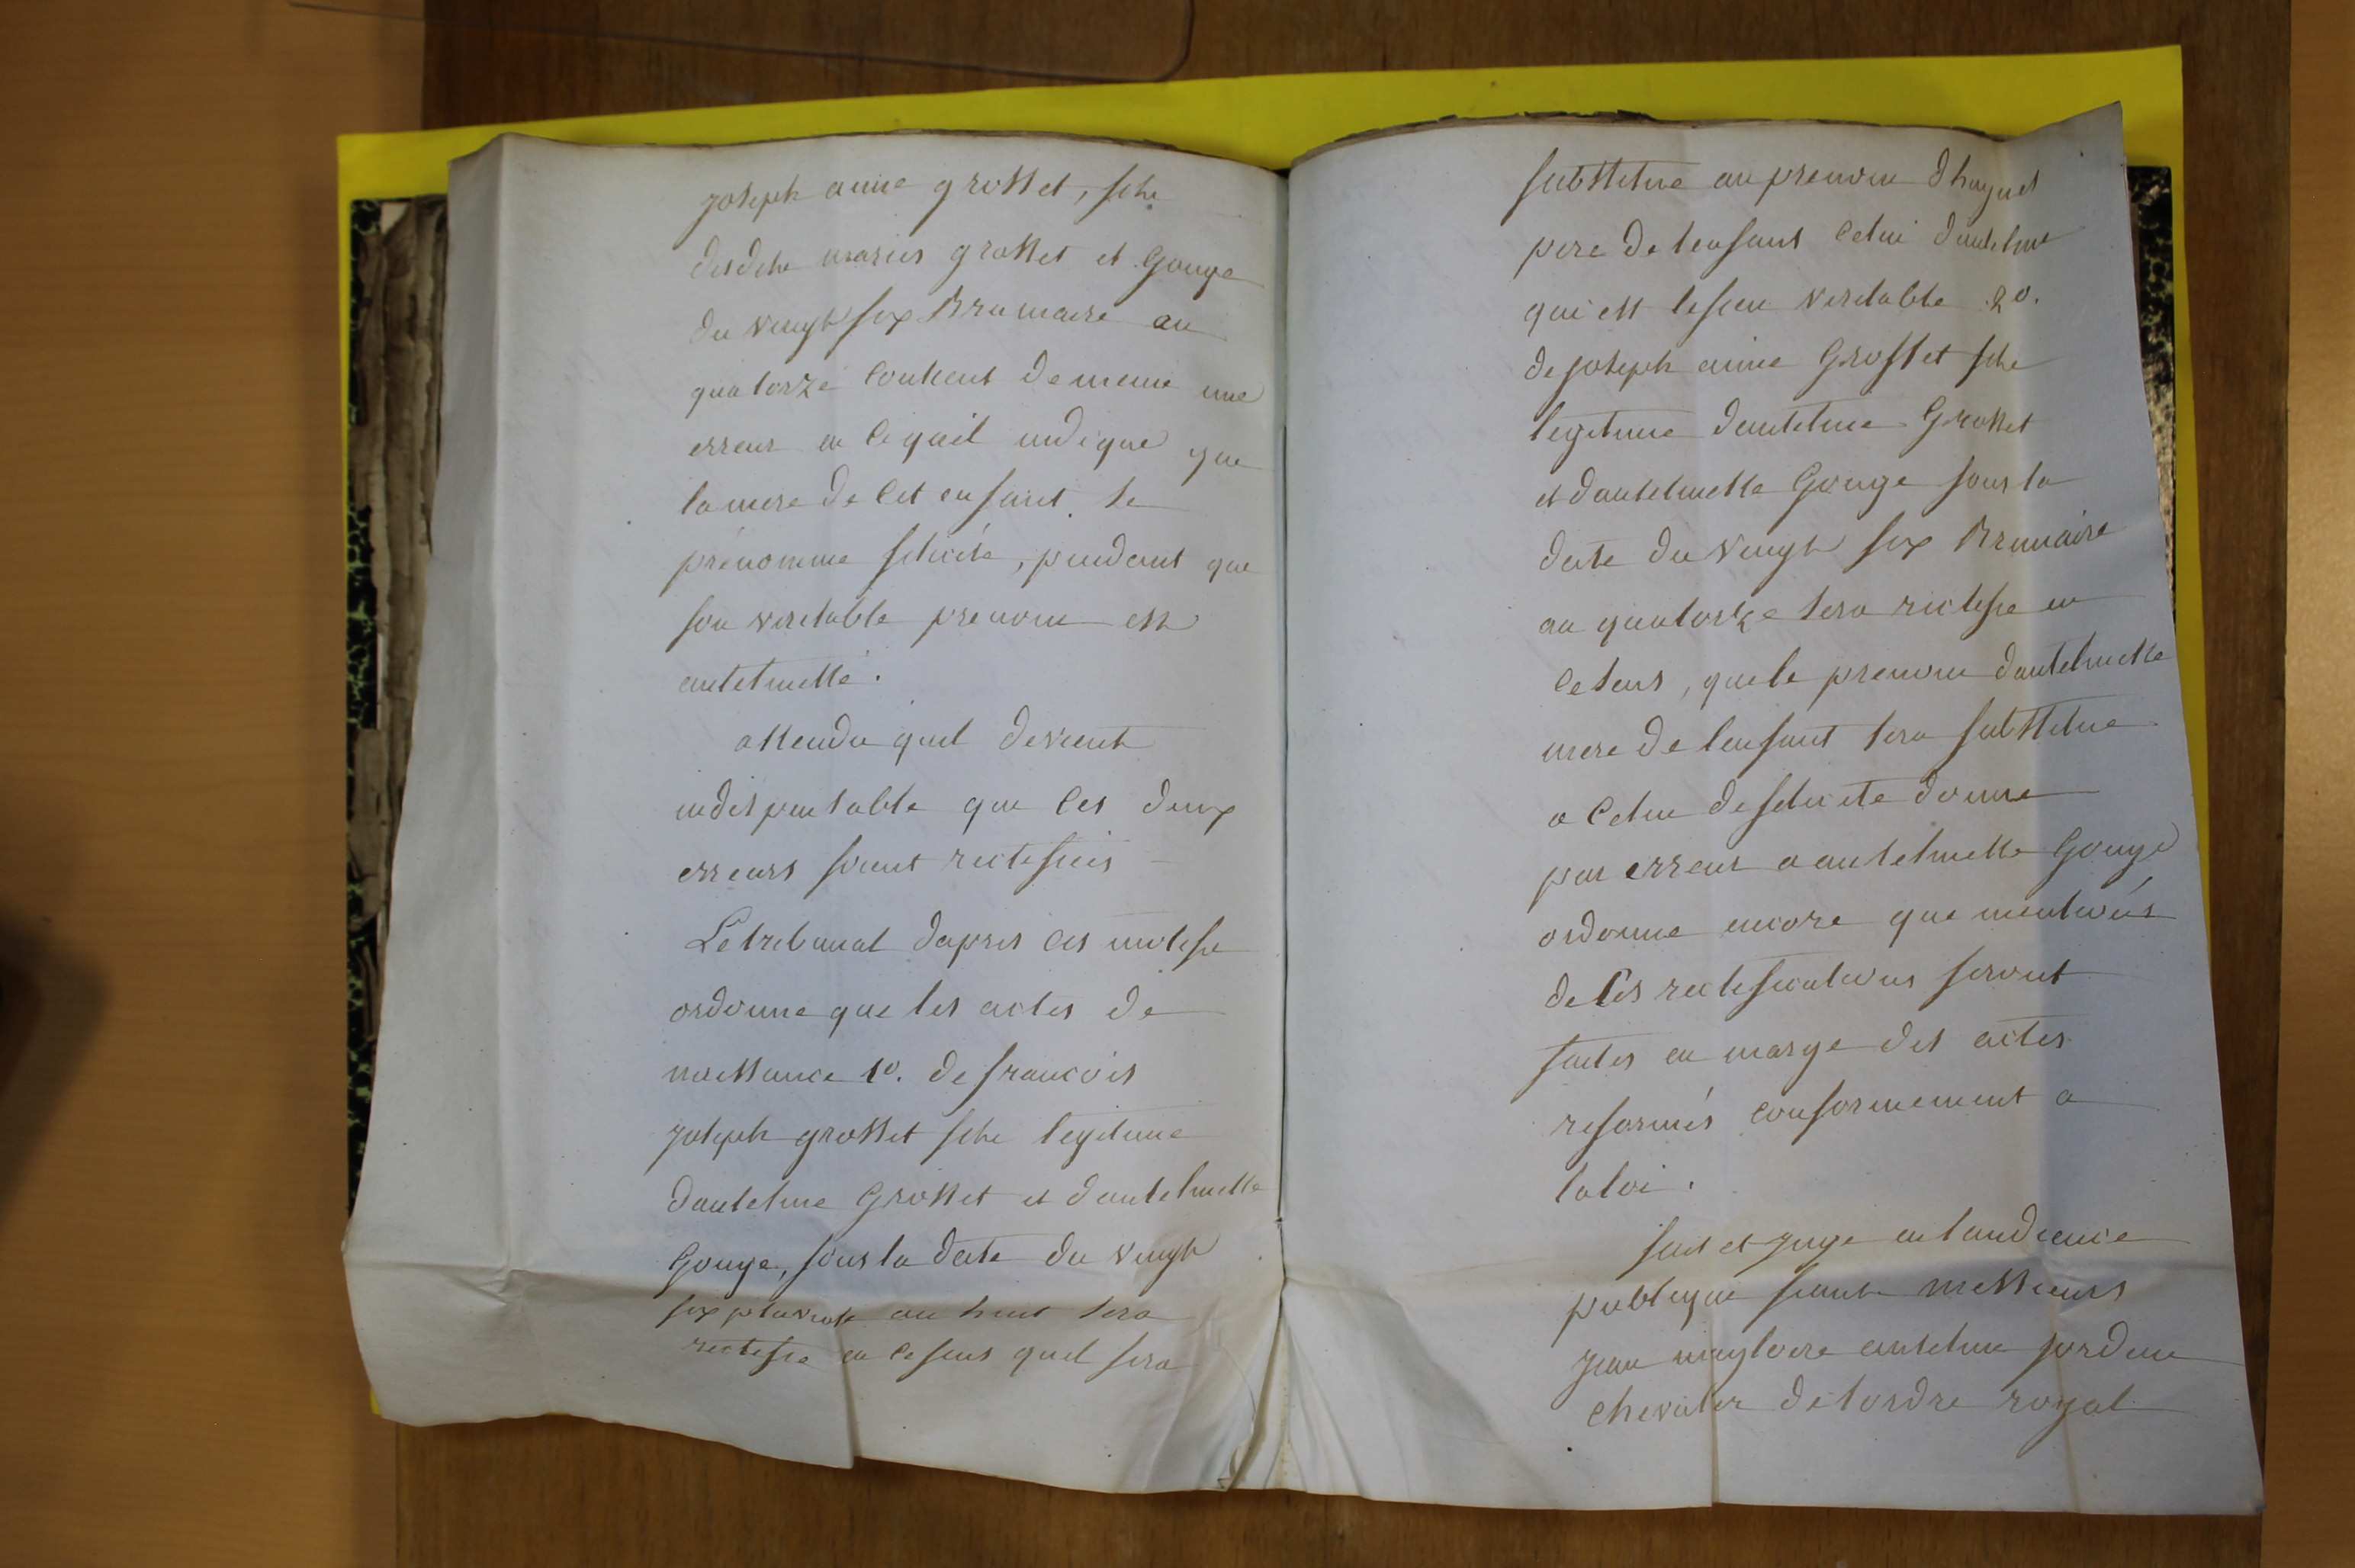 joseph aimé grosset, fils
desdits mariés grosset et Gouge
du vingt six Brumaire an
quatorze contient de meme une
erreur en ce qu'il indique que
la mere de cet enfant se
prénomme felicité, pendant que
son veritable prenom est
antelmette.
attendu quil devient
indispensable que ces deux
erreurs soient rectifiées
Le tribunal dapres ces motifs
ordonne que les actes de
naissance 1o. de francois
joseph grosset fils legitime
dantelme Grosset et dantelmette
Gouge, sous la date du vingt
six pluviose an huit sera
rectifié en ce sens quil sera
substitué au prenom dhugues
pere de lenfant celui dantelme
qui est le sien veritable 2o.
de joseph aimé Grosset fils
legitime dantelme Grosset
et dantelmette Gouge sous la
date du vingt six Brumaire
an quatorze sera rectifié en
ce sens, que le prenom dantelmette
mere de lenfant sera substitué
a celui de felicité donné
par erreur a antelmette Gouge
ordonne encore que mentions
de ces rectifications seront
faites en marge des actes
reformés conformement a
la loi.
fait et jugé en laudience
publique séants messieurs
jean magloire antelme jordan
chevalier de lordre royal